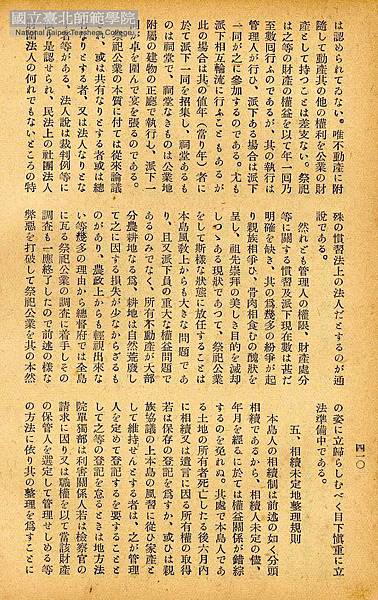 國立臺北師範學院
National Taipei Teachers College
四一〇
は認められてゐない。唯不動産に附
隨して動產其の他の權利を公業の財
產として持つことは差支ない。祭祀
は之等の財產の權益を以て年一囘乃
至數囘行ふのであるが、其の執行は
管理人が行ひ、派下ある場合は派下
一同が之に參加するのである。尤も
派下相互輪流に行ふこともあるが
此の場合は其の値年(當り年)者に
於て派下一同を招集し、祠堂あるも
のは祠堂で、祠堂なきものは公業地
附屬の建物の正廳で執行し、派下一
卓を圍んで宴を張るのである。
祭祀公業の本質に付ては從來論議
、或は共有なりとする者或は總
なりとする者、又は法人なりとな
等がある。法人說は裁判例等に
是認せられ、民法上の社團法人
團法人の何れでもないところの特
殊の慣習法上の法人だとするのが通
說である。
然れども管理人の權限、財產處分
等に關する慣習及派下現在數は甚だ
明確を缺き、其の爲幾多の紛爭が起
り親族相爭ひ、骨肉相食むの醜狀を
呈し、祖先崇拜の美しき目的を減却
しつゝある現狀であつて、祭祀公業
をして斯樣な狀態に放任することは
本島風敎上からも大きな問題であ
り、且又派下員の重大な權益問題で
あるのみでなく、所有不動產が大部
分農耕地なる爲、耕地は自然荒廢し
て之に因する損失が少なからざるも
のがあり、農政上からも輕視出來な
い等幾多の理由から總督府では全島
に瓦る祭祀公業の調査に着手しその
調査も一應終了したので前述の樣な
弊惡を打破して祭祀公業を其の本然
の姿に立歸らしむべく目下愼重に立
法準備中である。
五、相續未定地整理規則
本島人の相續制は前述の如く分頭
相續であるから、相續人未定の儘、
年月を經るに於ては權益關係が錯綜
するのを免れぬ。其處で本島人であ
る土地の所有者死亡したる後六月內
に相續又は遺言に因る所有權の取得
若は保存の登記を爲すか、或ひは親
族協議の上本島の風習に從ひ家產と
して維持せんとする者は、之が管理
人を定めて登記することを要すると
して之等の登記を怠るときは地方法
院單獨部は利害關係人若は檢察官の
請求に因り又は職權を以て當該財產
の保管人を選定して管理せしめる等
の方法に依り其の整理を爲すことに